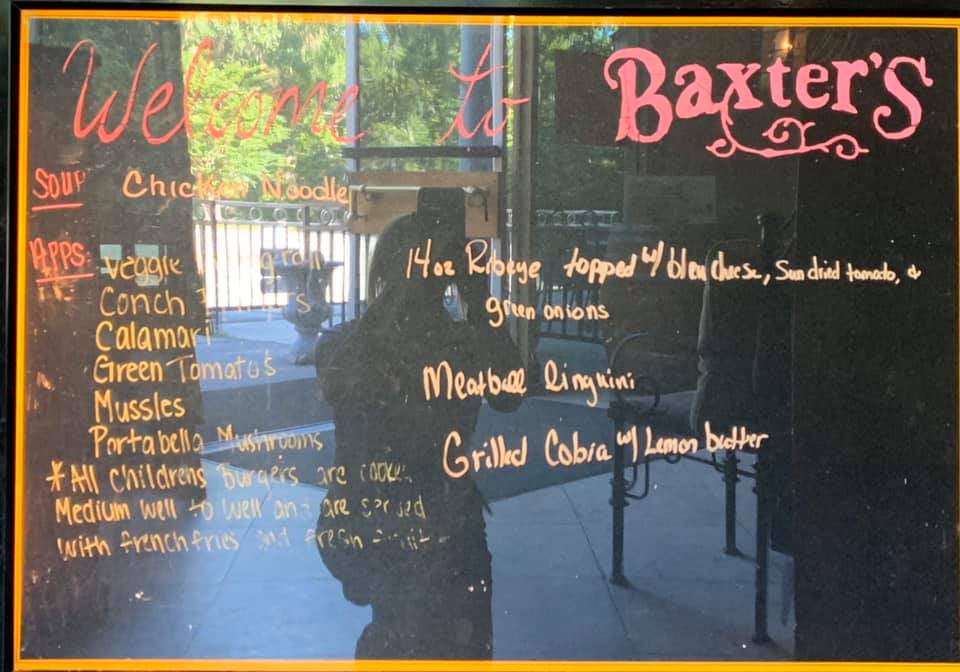 Welcome to Baxter's
Soup Chicken Noodle
Apps: Veggie
Conch
Calamari
Green Tomato's
Mussles
Portabella Mushrooms
*All Childrens Burgers are
Medium well to well and are served
with french fries and fresh
14oz Ribeye topped w/ bleu cheese, Sun dried tomado, &
green onions
Meatball linguini
Grilled Cobia w/ Lemon butter